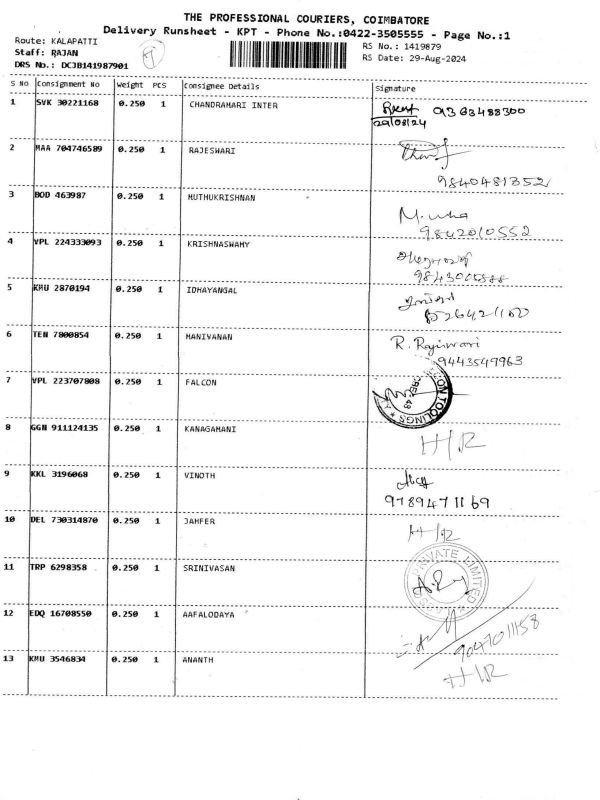 THE PROFESSIONAL COURIERS, COIMBATORE
Delivery Runsheet - KPT - Phone No.:0422-3505555 - Page No.:1
Route: KALAPATTI
RS No.: 1419879
Staff: RAJAN
RS Date: 29-Aug-2024
DRS No.: DCJB141987901
S NO Consignment No Weight PCS Consignee Details Signature
1 SVK 30221168 0.250 1 CHANDRAHARI INTER 9363488300
29/08/24
2 MAA 704746589 0.250 1 RAJESWARI
9840481352
3 BOD 463987 0.250 1 MUTHUKRISHNAN
9842010552
4 VPL 224333093 0.250 1 KRISHNASWAMY
5 KMU 2870194 0.250 1 IDHAYANGAL
6 TEN 7800854 0.250 1 MANIVANAN R. Rajiswari
9443549963
7 VPL 223707808 0.250 1 FALCON
TOOLINGS
8 GGN 911124135 0.250 1 KANAGAMANI H/R
9 KKL 3196068 0.250 1 VINOTH
9789471169
10 DEL 730314870 0.250 1 JAHFER H/R
11 TRP 6298358 0.250 1 SRINIVASAN
PRIVATE LIMITED
12 EDQ 16708550 0.250 1 AAFALODAYA
9047011158
13 KMU 3546834 0.250 1 ANANTH H/R